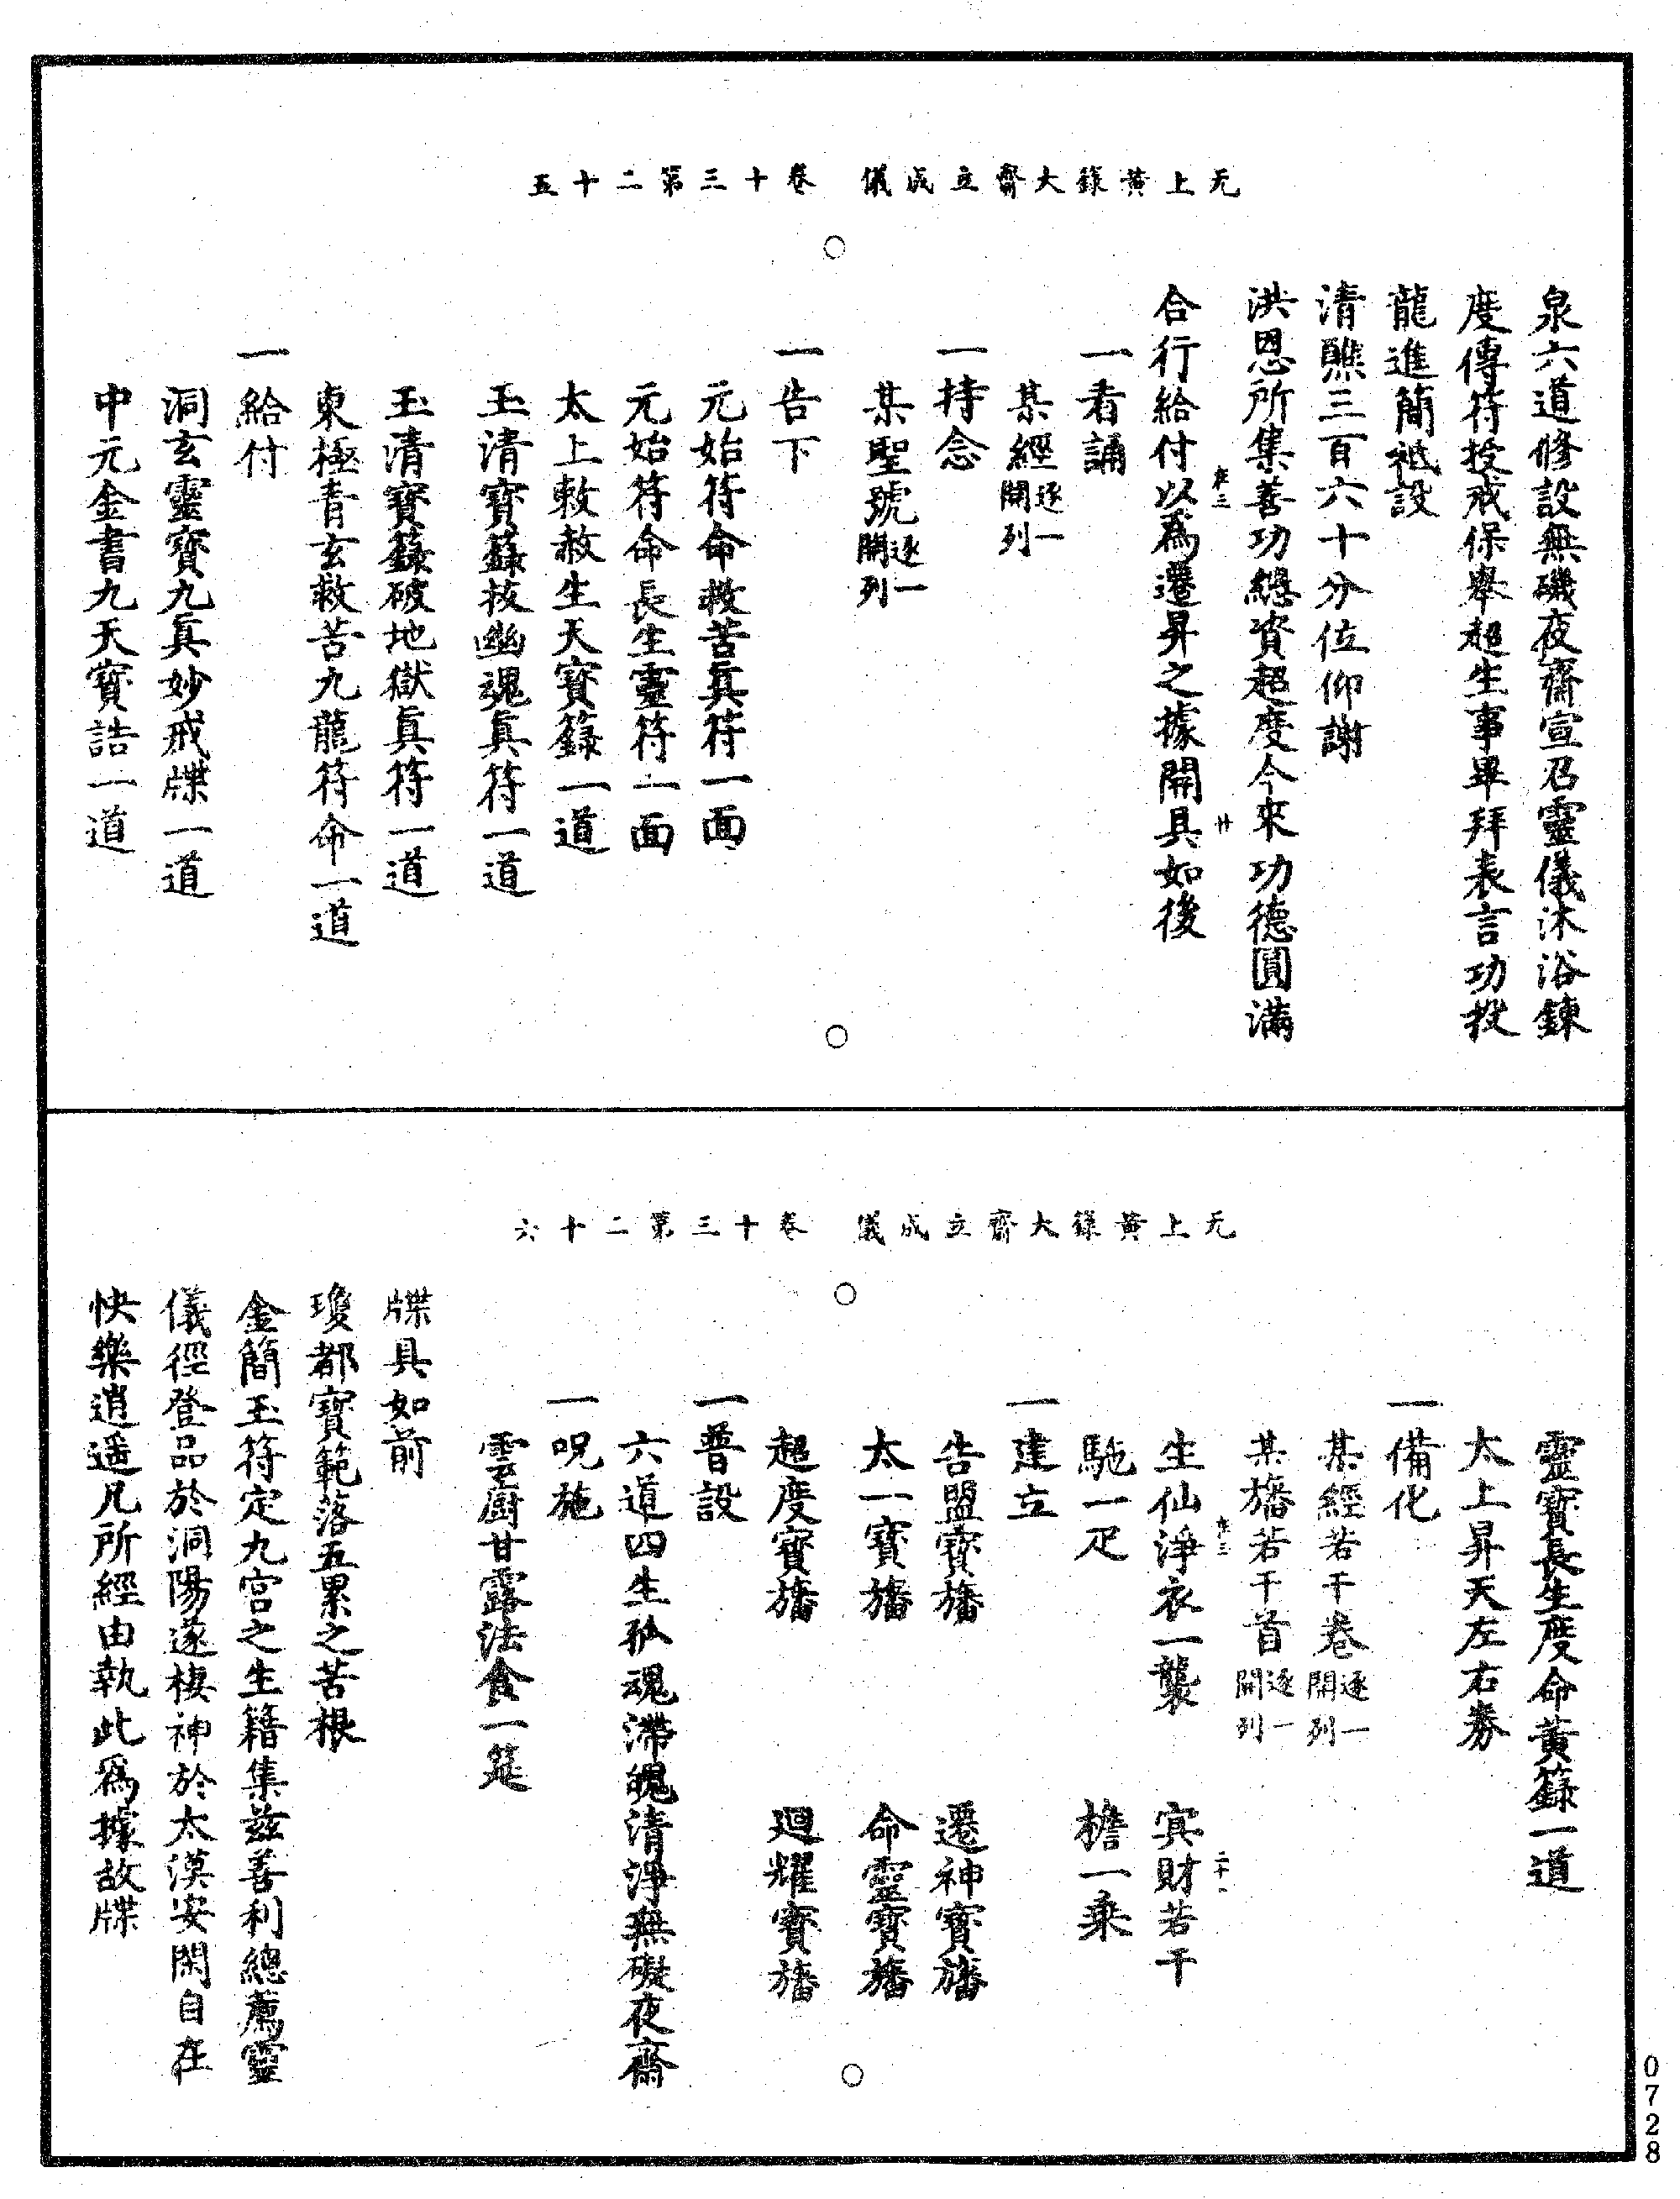 无上黃籙大齋立成儀　卷十三第二十五
泉六道修設無礙夜齋宣召靈儀沐浴鍊
度傳符授戒保舉超生事畢拜表言功投
龍進簡祗設
清醮三百六十分位仰謝
洪恩所集善功總資超度今來功德圓滿
合行給付以爲遷昇之據開具如後
一看誦
某經逐一開列
一持念
某聖號逐一開列
一告下
元始符命救苦眞符一面
元始符命長生靈符一面
太上敕赦生天寶籙一道
玉清寶籙拔幽魂眞符一道
玉清寶籙破地獄眞符一道
東極青玄救苦九龍符命一道
一給付
洞玄靈寶九眞妙戒牒一道
中元金書九天寶誥一道
无上黃籙大齋立成儀　卷十三第二十六
靈寶長生度命黃籙一道
太上昇天左右券
一備化
某經若干卷逐一開列
某旛若干首逐一開列
生仙淨衣一襲　冥財若干
馳一疋　檐一乘
一建立
告盟寶旛　遷神寶旛
太一寶旛　命靈寶旛
超度寶旛　廻耀寶旛
一普設
六道四生孤魂滯魄清淨無礙夜齋
一呪施
雲廚甘露法食一筵
牒具如前
瓊都寶範落五累之苦根
金簡玉符定九宮之生籍集茲善利總薦靈
儀徑登品於洞陽遂棲神於太漠安閑自在
快樂逍遥凡所經由執此爲據故牒
0728